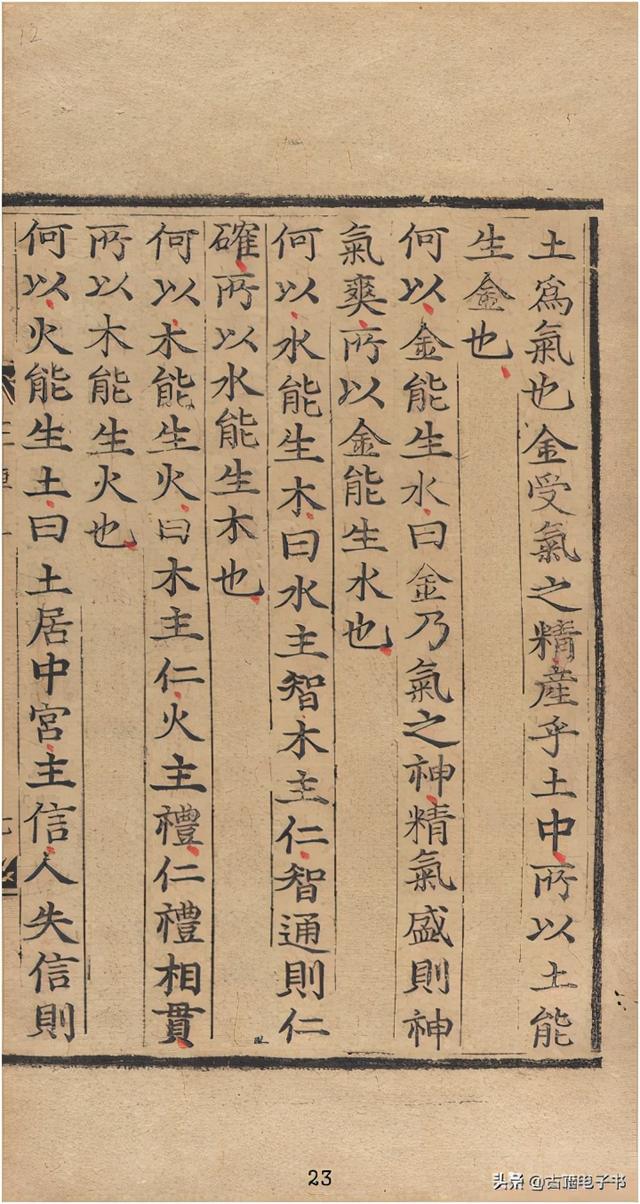 土爲氣也金受氣之精產乎土中所以土能
生金也
何以金能生水曰金乃氣之神精氣盛則神
氣爽所以金能生水也
何以水能生木曰水主智木主仁智通則仁
確所以水能生木也
何以木能生火曰木主仁火主禮仁禮相貫
所以木能生火也
何以火能生土曰土居中宮主信人失信則
12
23
头条@古籍电子书